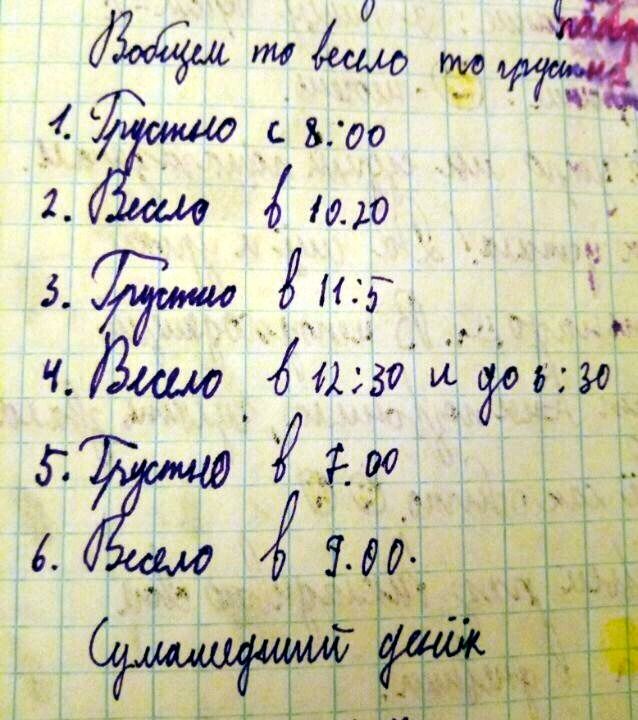 Вобщем то весело то грустно
1. Грустно с 8:00
2. Весело в 10.20
3. Грустно в 11:5
4. Весело в 12:30 и до 3:30
5. Грустно в 7.00
6. Весело в 9.00.
Сумашедший денёк